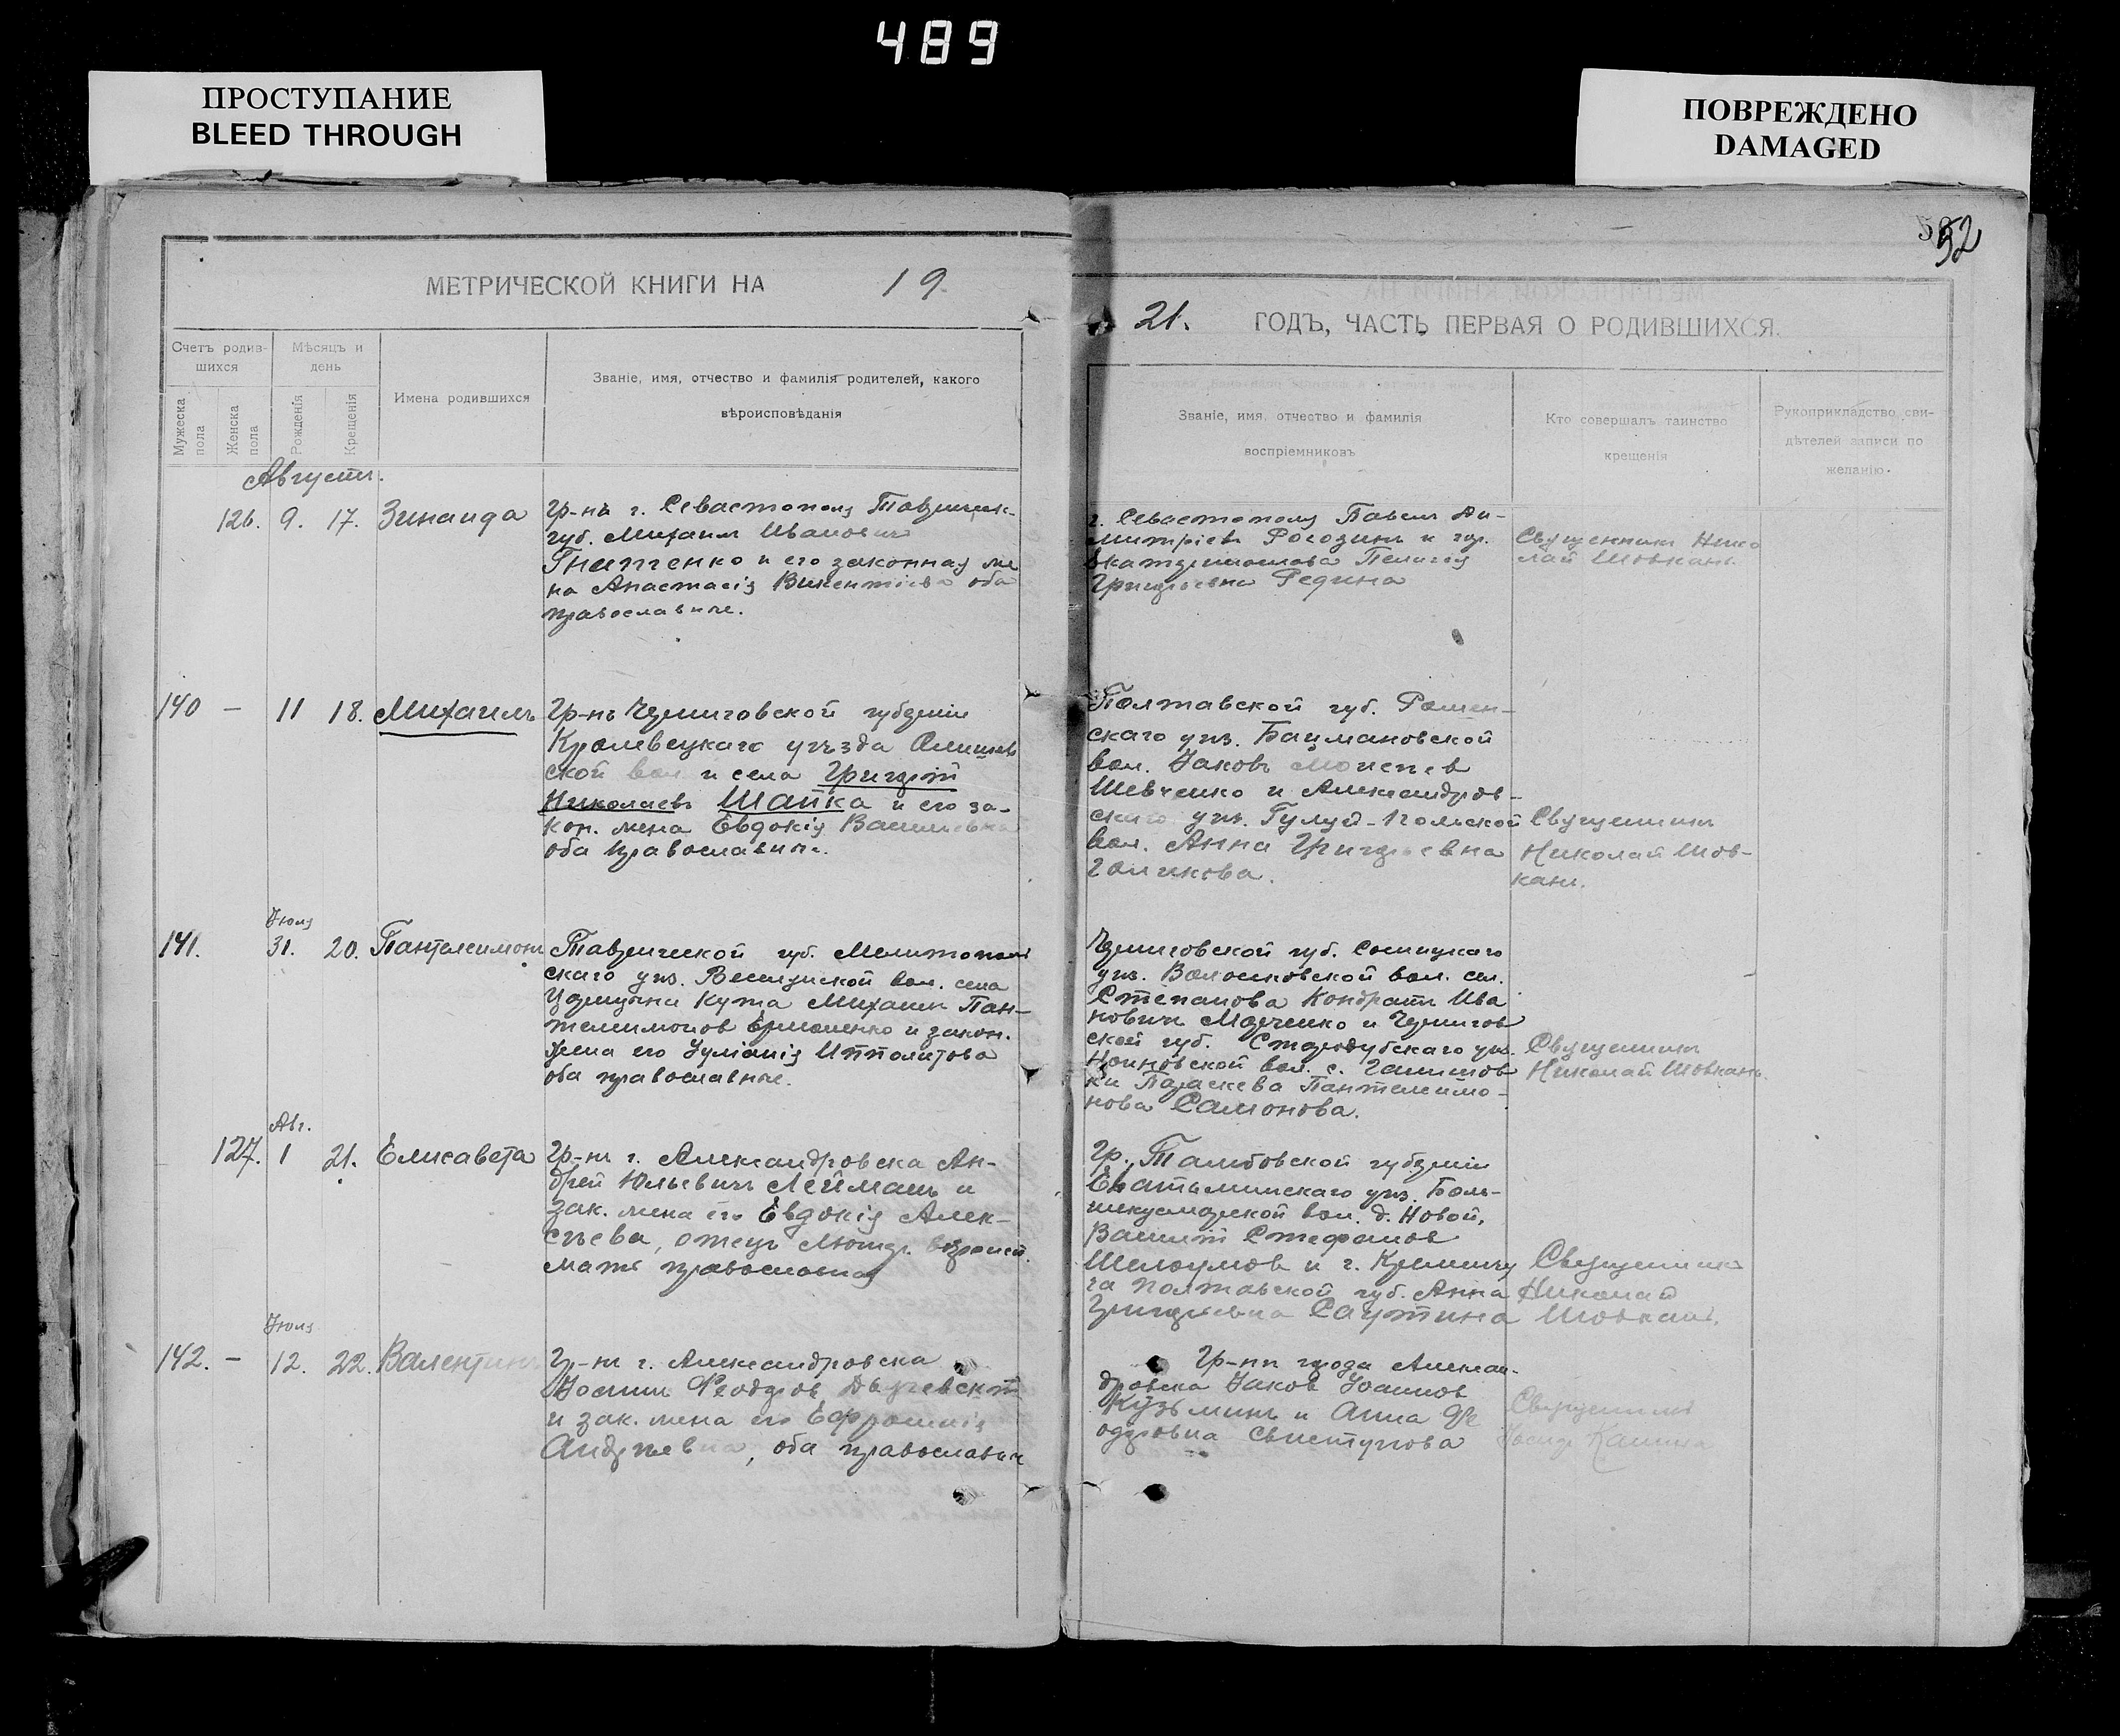 489
ПРОСТУПАНИЕ
BLEED THROUGH
ПОВРЕЖДЕНО
DAMAGED
52
МЕТРИЧЕСКОЙ КНИГИ НА 19
21. ГОДЪ, ЧАСТЬ ПЕРВАЯ О РОДИВШИХСЯ.
Счетъ родив-
шихся
Мужеска пола
Женска пола
Мѣсяцъ и
день
Рожденія
Крещенія
Имена родившихся
Званіе, имя, отчество и фамилія родителей, какого
вѣроисповѣданія
Званіе, имя, отчество и фамилія
воспріемниковъ
Кто совершалъ таинство
крещенія
Рукоприкладство сви-
дѣтелей записи по
желанію.
Августъ.
126. 9. 17. Зинаида
Гр-нъ г. Севастополя
губ. Михаил Иванович
Гнатенко и его законная же
на Анастасія Викентіева оба
православные.
г. Севастополя Павел Ди-
митріев Рогодин и гор.
Пелагія
Григорьевна Редина
Священник Нико
лай Шовкань
140 — 11 18. Михаилъ
Гр-нъ Черниговской губерніи
Кролевецкаго уѣзда
ской вол и села Григорій
Николаевъ Шапка и его за-
кон. жена Евдокія Васильевна
оба православные.
Полтавской губ. Ромен-
скаго уѣз. Бацмановской
вол. Іаковъ
Шевченко и Александров-
скаго уѣз. Гуляй-Польской
вол. Анна Григорьевна
Голикова.
Священник
Николай Шов-
кань.
Іюля
141. 31. 20. Пантелеимон
Таврической губ. Мелитополь
скаго уѣз. Веселунской вол. села
Кута Михаил Пан-
телеимонов Ермоленко и закон.
жена его Іуліанія Ипполитова
оба православные.
Черниговской губ. Сосницкаго
уѣз. Волосковской вол. сел.
Степанова Кондрат Ива
нович Марченко и Чернигов
ской губ. Стародубскаго уѣз.
вол. с.
ки Параскева Пантелеимо-
нова Самонова.
Священник
Николай Шовкань
Авг.
127. 1 21. Елисавета
Гр-нъ г. Александровска Ан-
дрей Юльевичъ Лейманъ и
зак. жена его Евдокія Алек-
сѣева, отецъ Лютер. вѣроисп.
мать православная
Гр. Тамбовской губерніи
Елатьминскаго уѣз. Боль-
вол. д. Новой,
Василій Стефанов
Шелоумов и г. Кременчу
га Полтавской губ. Анна
Григорьевна Саутина
Священник
Николай
Шовкань.
Іюля
142. — 12. 22. Валентинъ
Гр-нъ г. Александровска
Феодоров
и зак. жена его Ефросинія
Андреевна, оба православн
Гр-не города Алексан-
дровска Іаков Іоаннов
Кузьминъ и Анна Фе
одоровна Свистунова
Священник